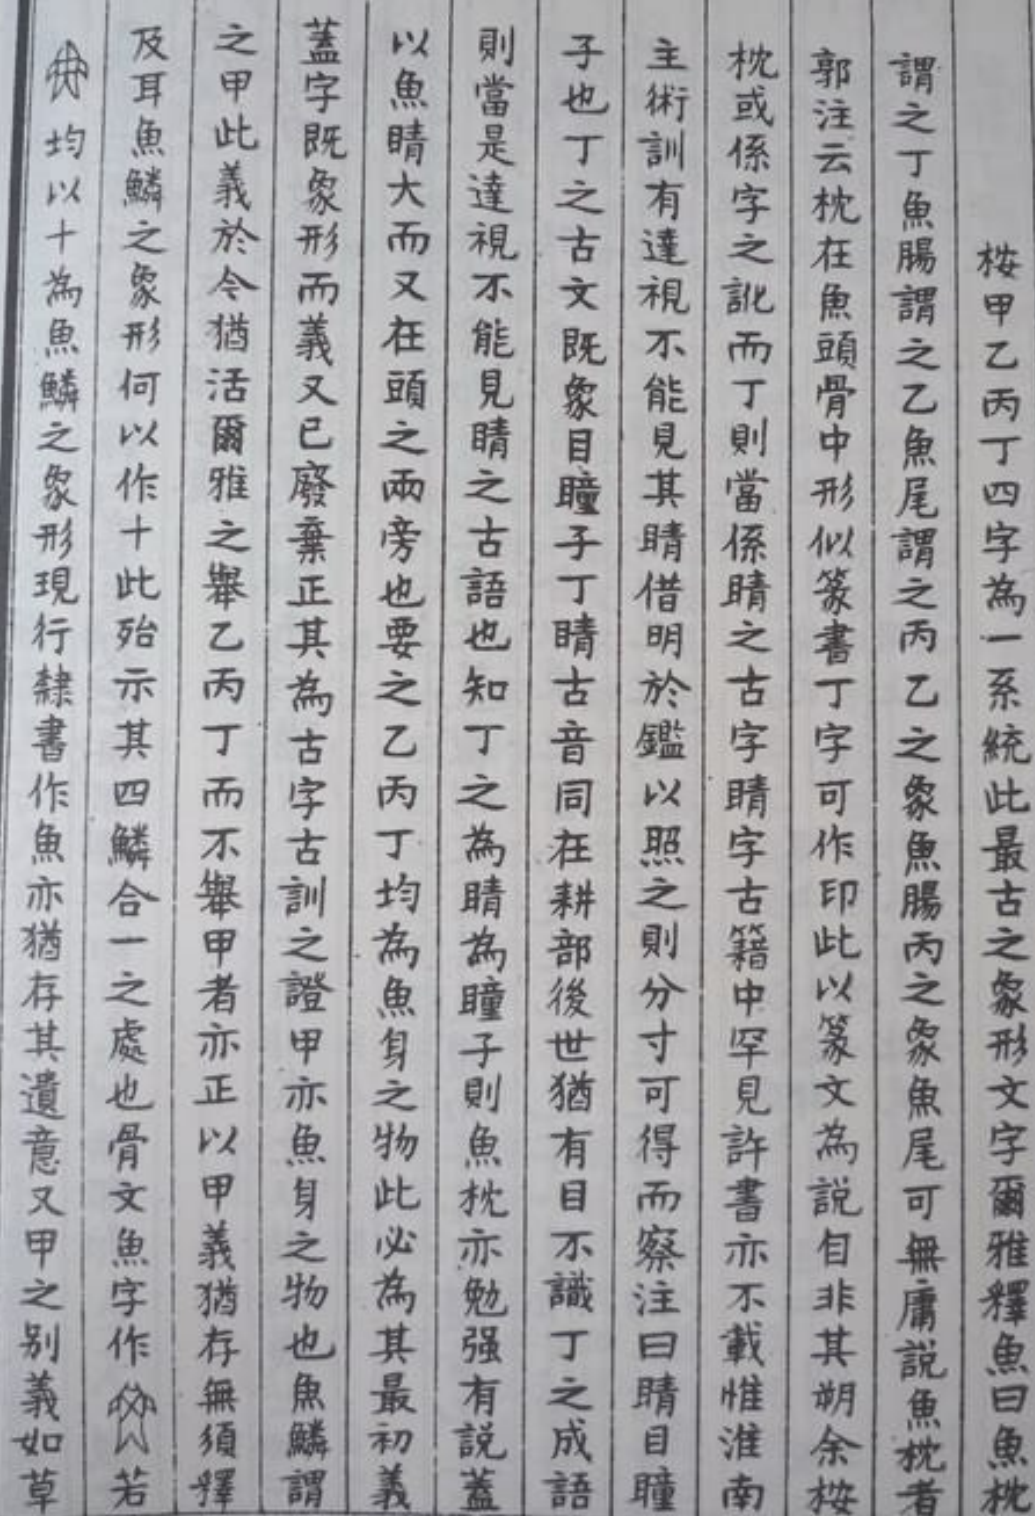 桉甲乙丙丁四字為一系統此最古之象形文字爾雅釋魚曰魚枕
謂之丁魚腸謂之乙魚尾謂之丙乙之象魚腸丙之象魚尾可無庸説魚枕者
郭注云枕在魚頭骨中形似篆書丁字可作印此以篆文為説自非其朔余桉
枕或係字之訛而丁則當係睛之古字睛字古籍中罕見許書亦不載惟淮南
主術訓有達視不能見其睛借明於鑑以照之則分寸可得而察注曰睛目瞳
子也丁之古文既象目瞳子丁睛古音同在耕部後世猶有目不識丁之成語
則當是達視不能見睛之古語也知丁之為睛為瞳子則魚枕亦勉强有説蓋
以魚睛大而又在頭之兩旁也要之乙丙丁均為魚身之物此必為其最初義
蓋字既象形而義又已廢棄正其為古字古訓之證甲亦魚身之物也魚鱗謂
之甲此義於今猶活爾雅之舉乙丙丁而不舉甲者亦正以甲義猶存無須釋
及耳魚鱗之象形何以作十此殆示其四鱗合一之處也骨文魚字作若
均以十為魚鱗之象形現行隸書作魚亦猶存其遺意又甲之别義如草